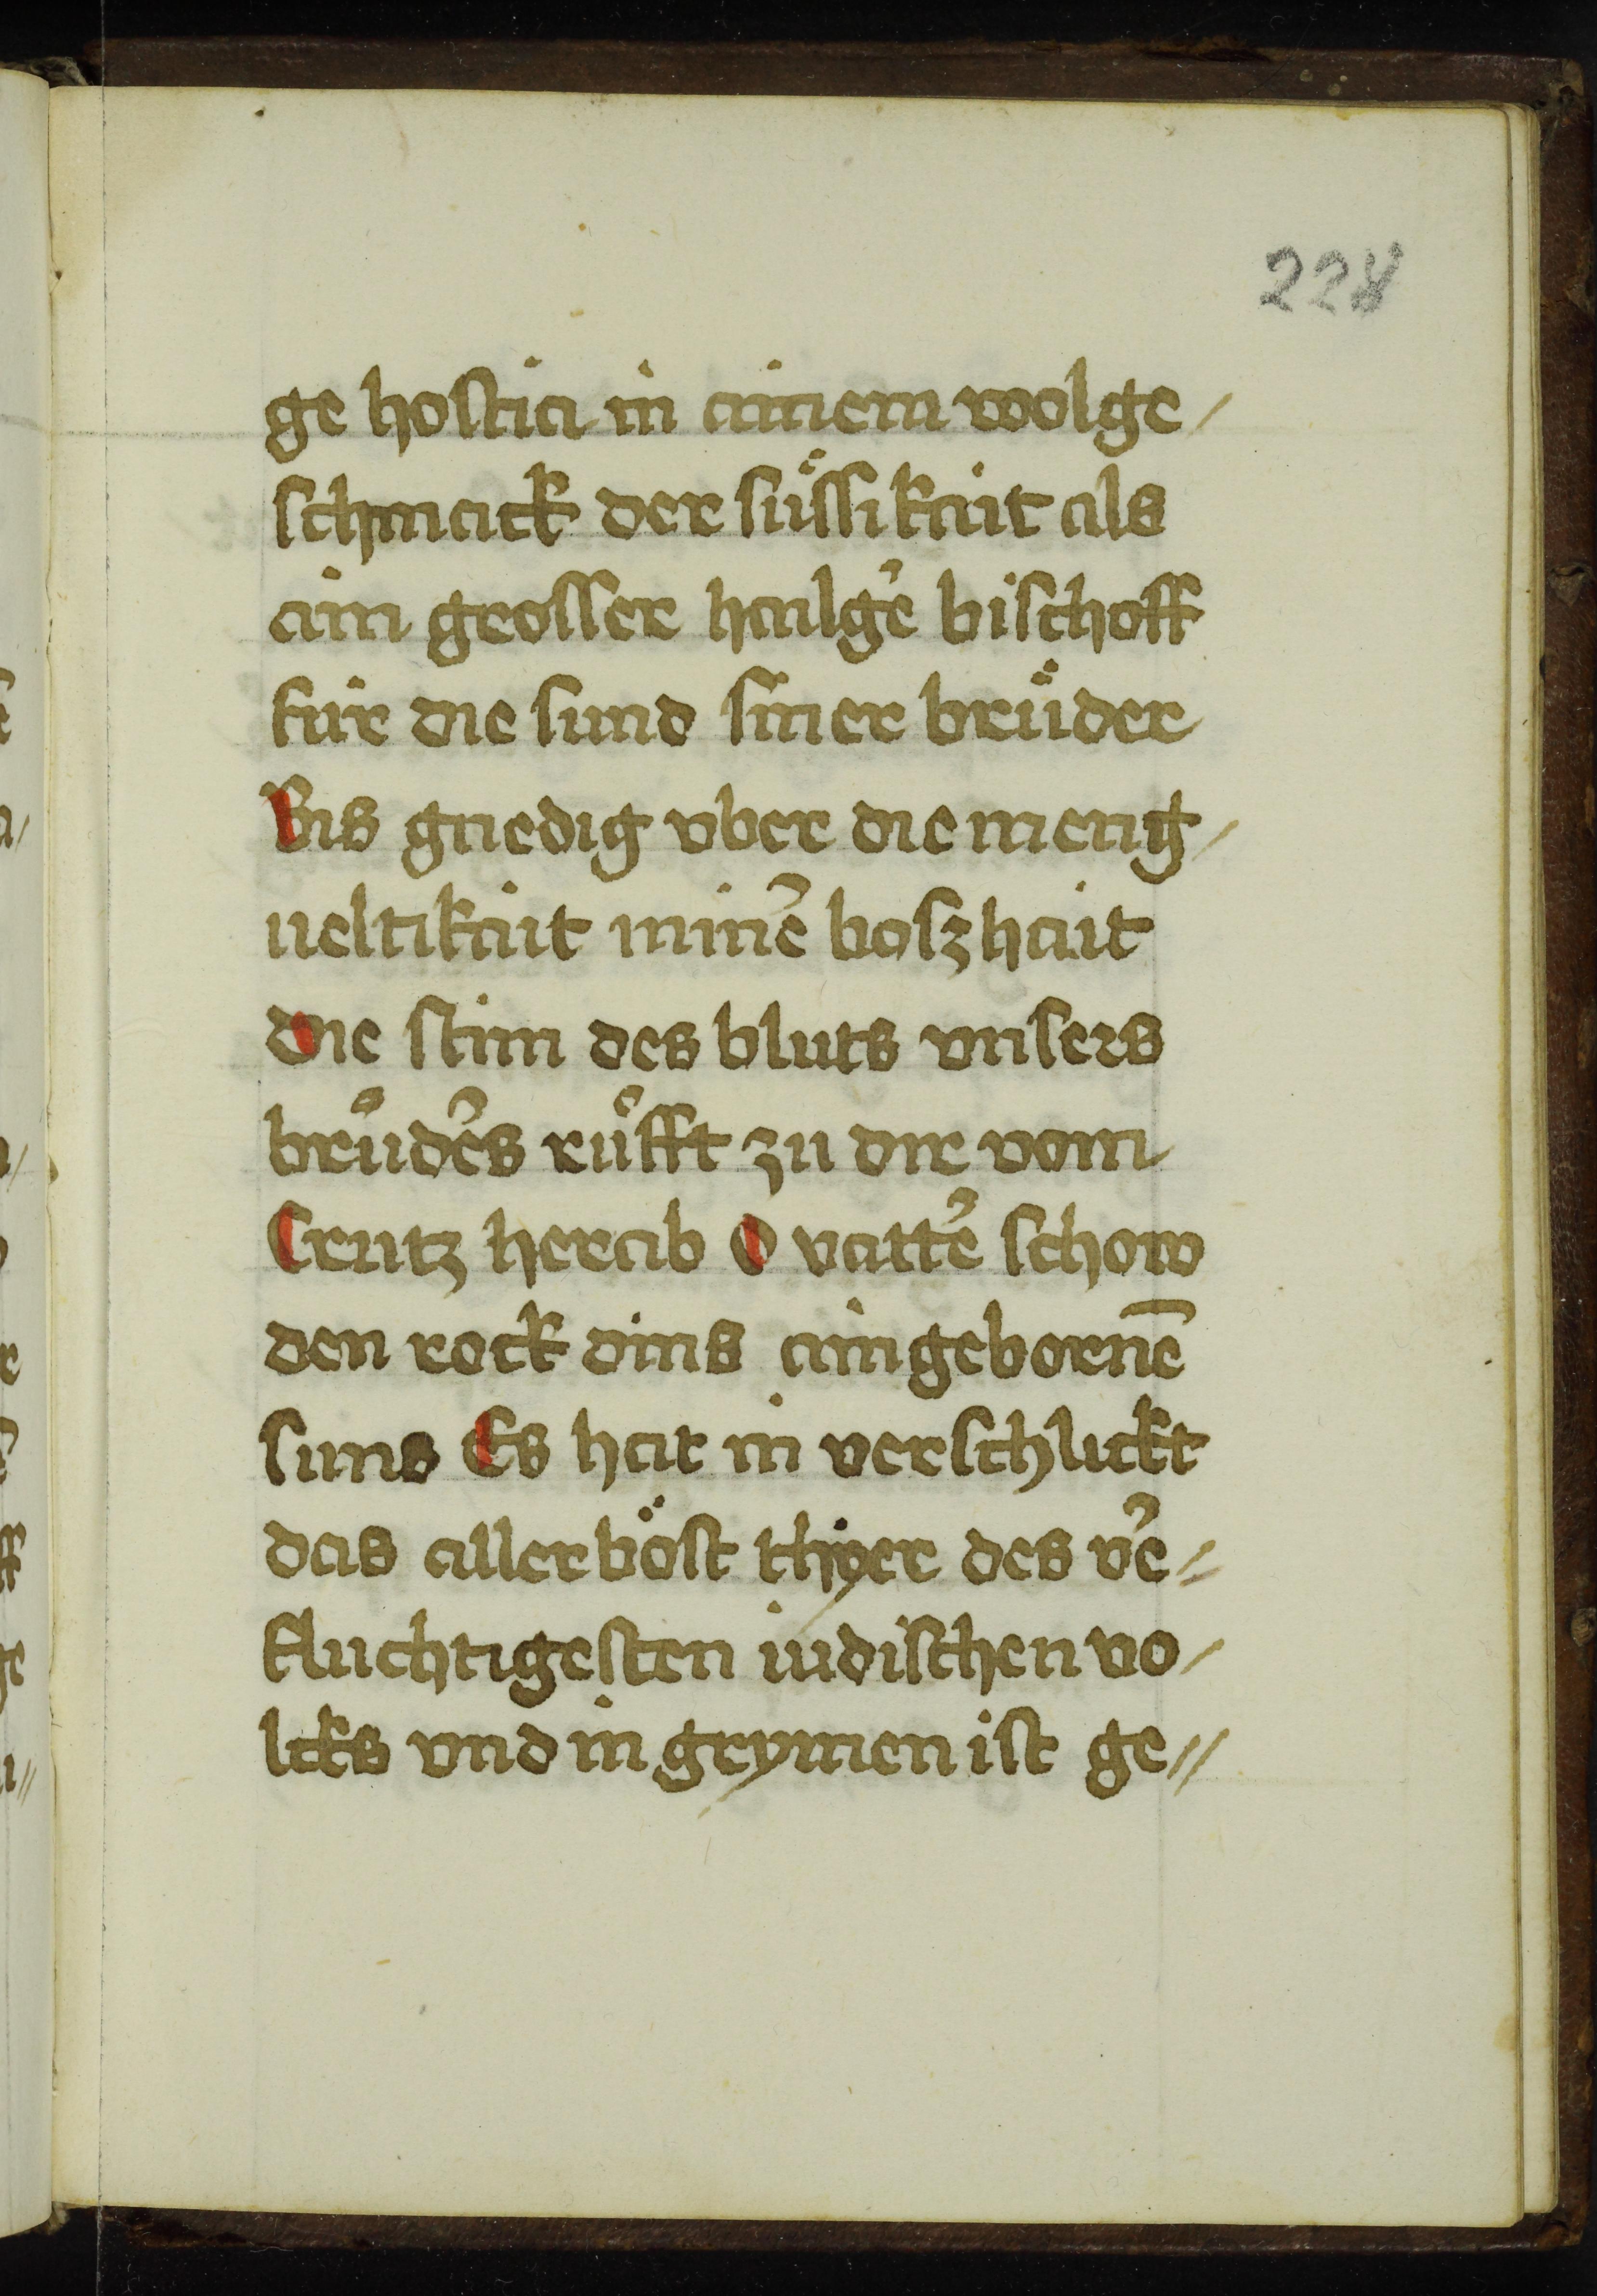 228
ge hostia in ainem wolge/
schmack der süssikait als
ain grosser hailge᷑ bischoff
für die sund siner brüder
Bis gnedig vber die menig/
ueltikait mine᷑ boszhait
die stim des bluts vnsers
brüde᷑s rüfft zu dir vom
Crutz herab O vatte᷑ schow
den rock dins aingebornē
suns Es hat in verschluckt
das aller böst thyer des ve᷑/
fluchtigesten iudischen vo/
lcks vnd in grymen ist ge//